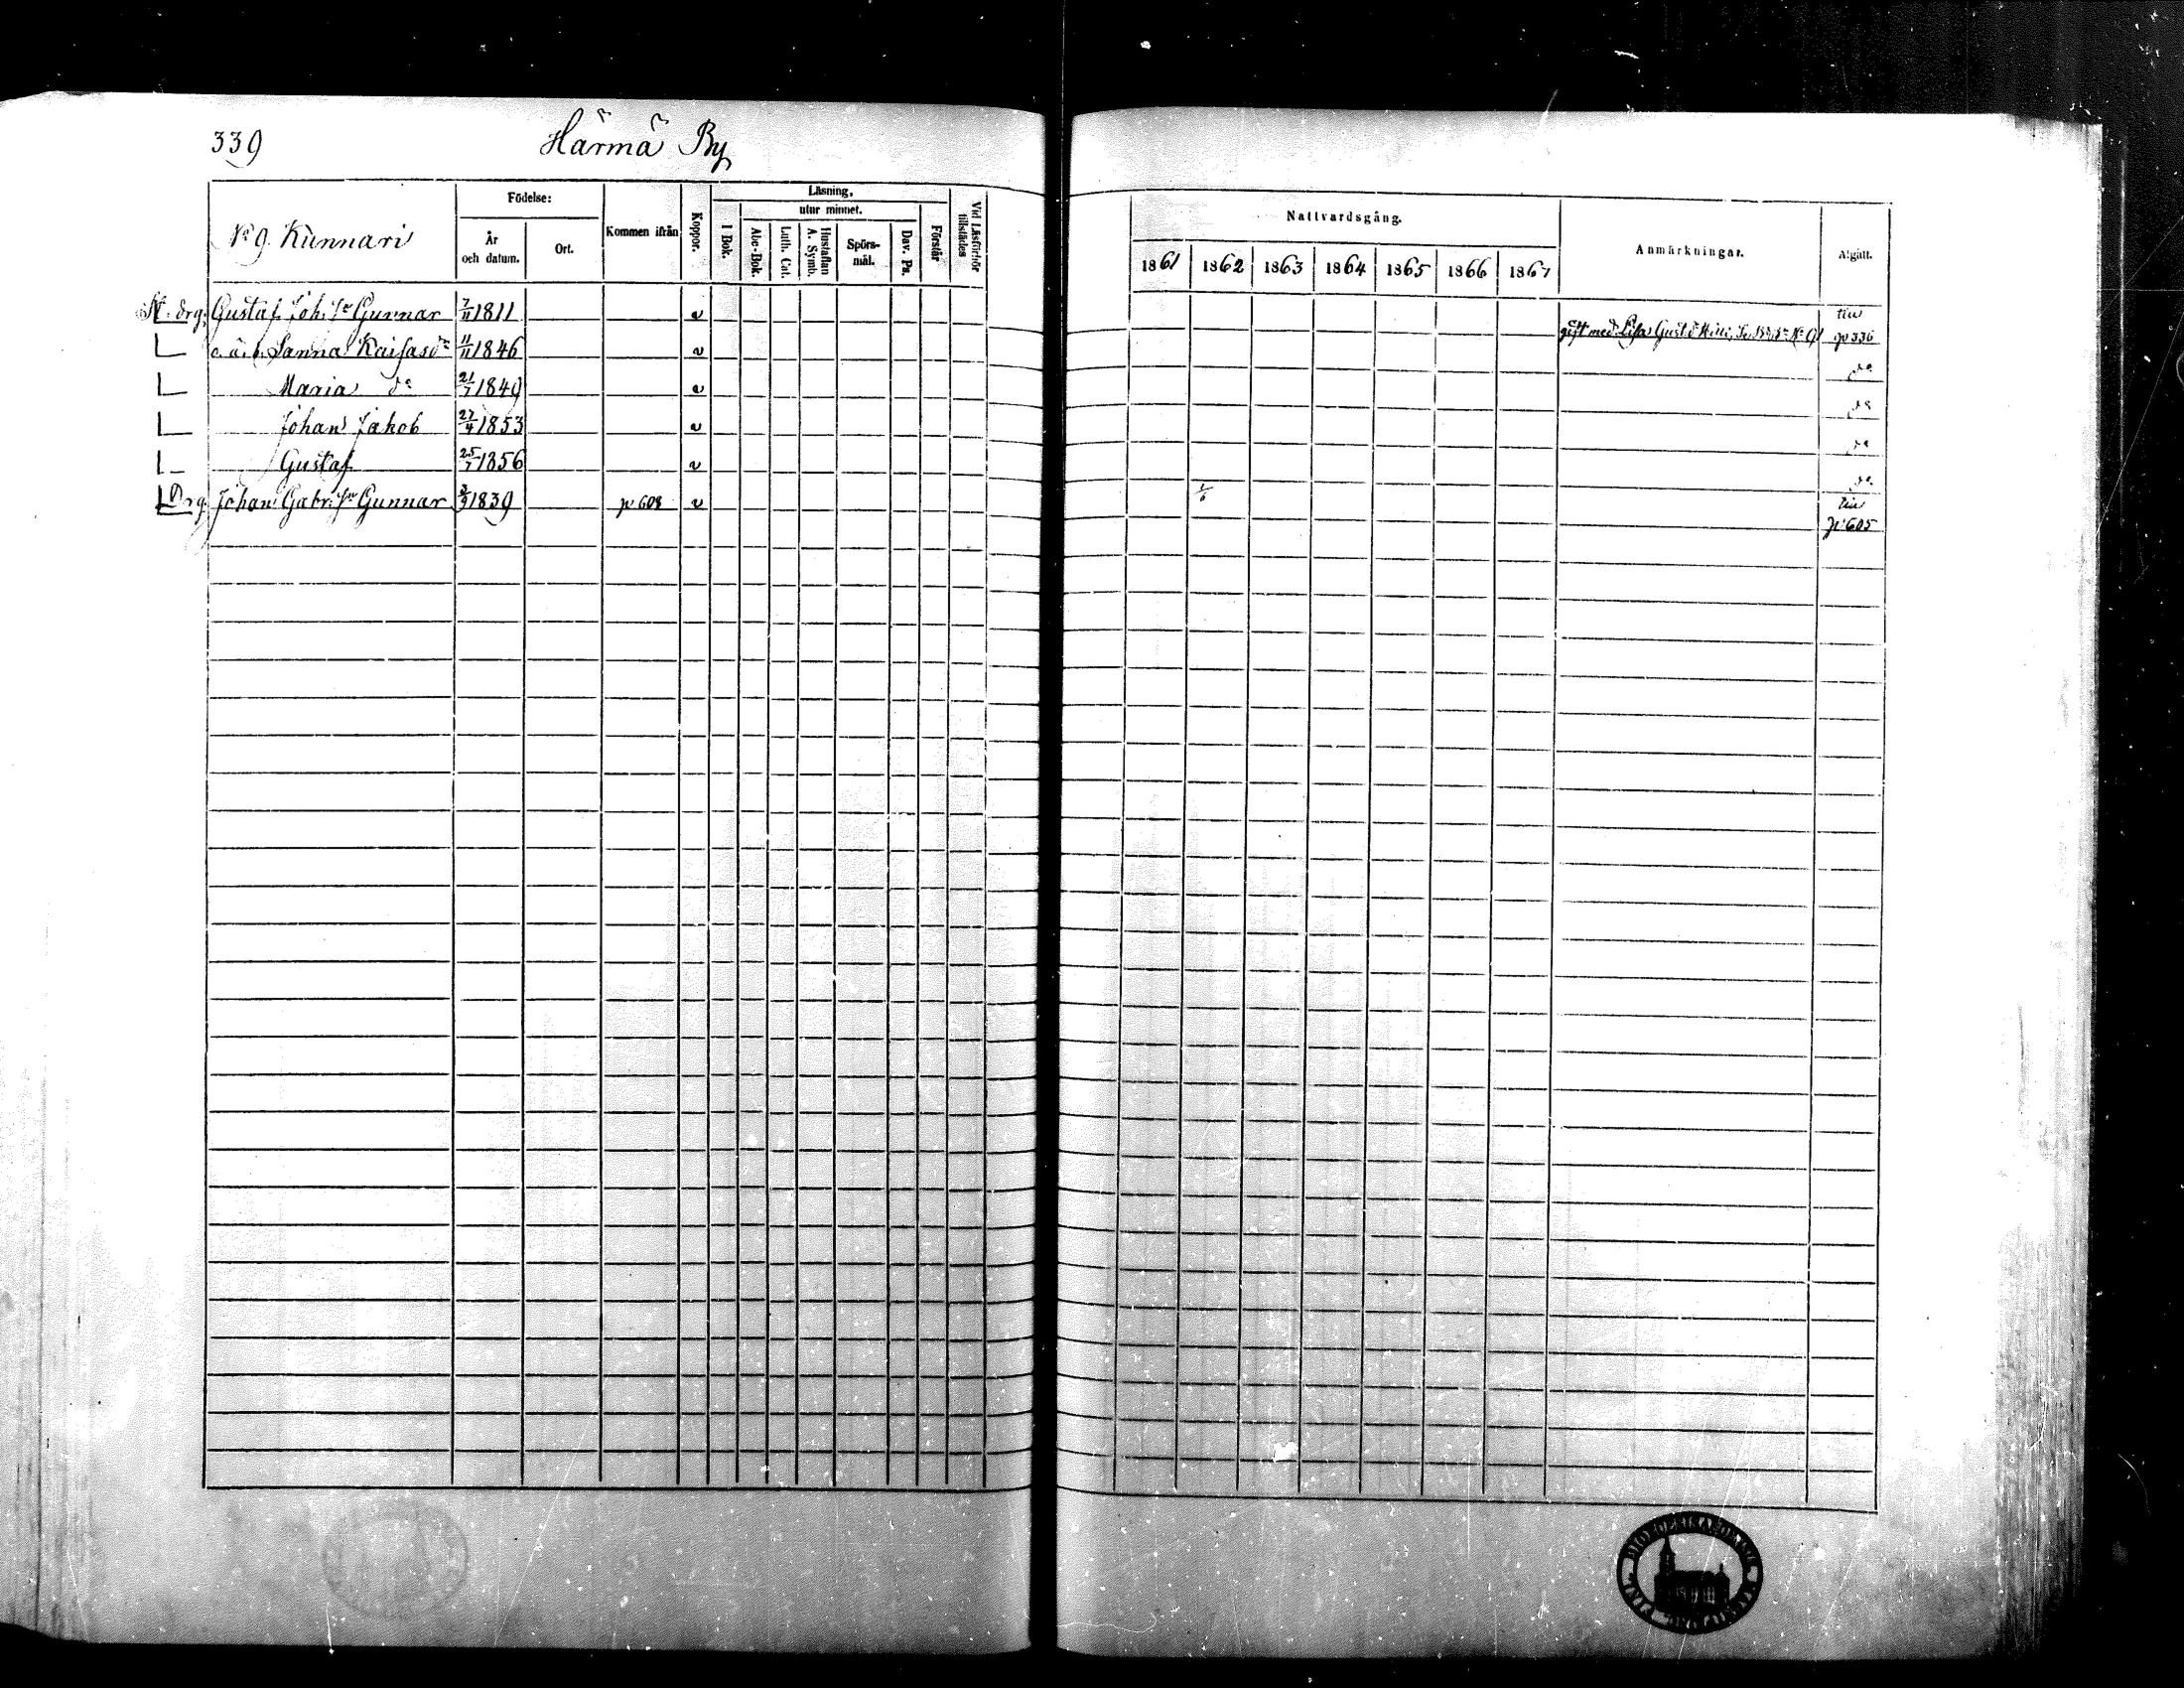 339 Härmä By
No 9. Kunnari
Födelse:
År och datum.
Ort.
Kommen ifrån
Koppor.
Läsning,
utur minnet.
I Bok.
Abc-Bok.
Luth. Cat.
Hustaflan A. Symb.
Spörs-mål.
Dav. Ps.
Förstår
Vid Läsförhör tillstädes
Nattvardsgång.
1861 1862 1863 1864 1865 1866 1867
Anmärkningar.
Afgått.
drg. Gustaf Joh. Sn Gunnar 7/11 1811 v gift med Lisa Gust. till p 336
Sanna Kaisasdr 11/11 1846 v do
Maria do 21/7 1849 v do
Johan Jakob 27/4 1853 v do
Gustaf 25/7 1856 v do
Drg. Johan Gabr. Sn Gunnar 3/9 1839 p 608 v till
p 605